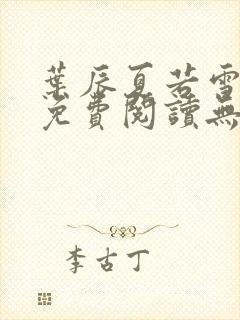 葉辰夏若雪
免費閱讀無
李古丁